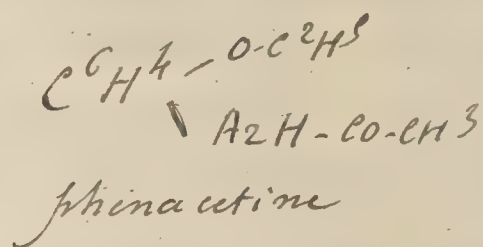 C⁶H⁴ - O-C²H⁵
\ AzH-CO-CH³
phénacetine